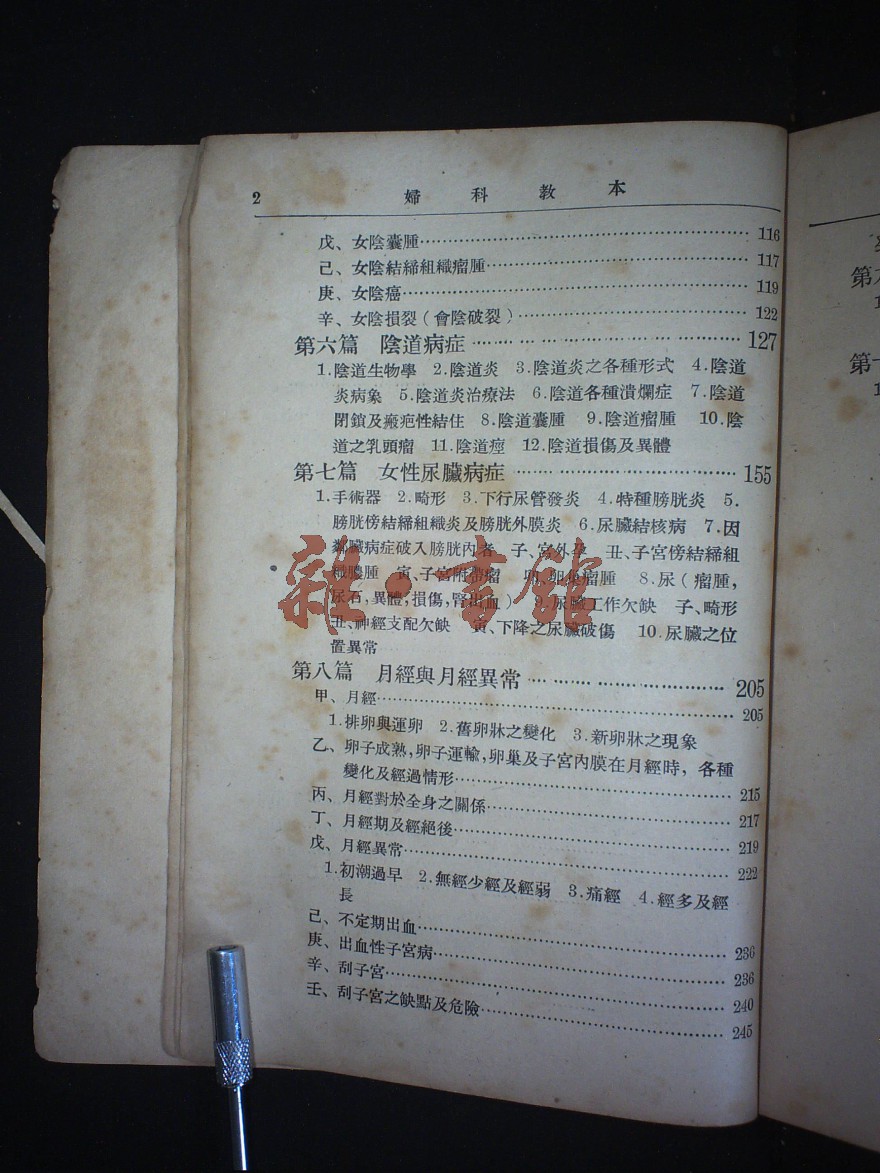 2 婦科教本
戊、女陰囊腫 116
己、女陰結締組織瘤腫 117
庚、女陰癌 119
辛、女陰損裂(會陰破裂) 122
第六篇 陰道病症 127
1.陰道生物學 2.陰道炎 3.陰道炎之各種形式 4.陰道
炎病象 5.陰道炎治療法 6.陰道各種潰爛症 7.陰道
閉鎖及瘢疤性結住 8.陰道囊腫 9.陰道瘤腫 10.陰
道之乳頭瘤 11.陰道痙 12.陰道損傷及異體
第七篇 女性尿臟病症 155
1.手術器 2.畸形 3.下行尿管發炎 4.特種膀胱炎 5.
膀胱傍結締組織炎及膀胱外膜炎 6.尿臟結核病 7.因
鄰臟病症破入膀胱內者 子、宮外孕 丑、子宮傍結締組
織膿腫 寅、子宮附帶瘤 卵巢瘤腫 8.尿(瘤腫,
尿石,異體,損傷,腎出血) 尿臟工作欠缺 子、畸形
丑、神經支配欠缺 寅、下降之尿臟破傷 10.尿臟之位
置異常
第八篇 月經與月經異常 205
甲、月經 205
1.排卵與運卵 2.舊卵牀之變化 3.新卵牀之現象
乙、卵子成熟,卵子運輸,卵巢及子宮內膜在月經時,各種
變化及經過情形 215
丙、月經對於全身之關係 217
丁、月經期及經絕後 219
戊、月經異常 222
1.初潮過早 2.無經少經及經弱 3.痛經 4.經多及經
長
己、不定期出血 236
庚、出血性子宮病 236
辛、刮子宮 240
壬、刮子宮之缺點及危險 245
雜·書館
第
1
第十
1